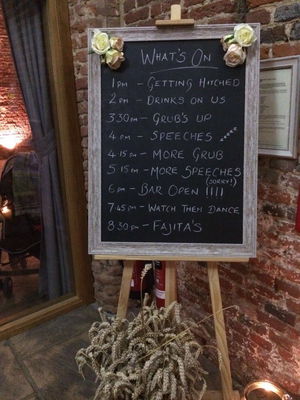 WHAT'S ON
1PM - GETTING HITCHED
2PM - DRINKS ON US
3.30PM - GRUB'S UP
4PM - SPEECHES
4.15PM - MORE GRUB
5.15PM - MORE SPEECHES
(SORRY!)
6PM - BAR OPEN !!!!
7.45PM - WATCH THEM DANCE
8.30PM - FAJITA'S